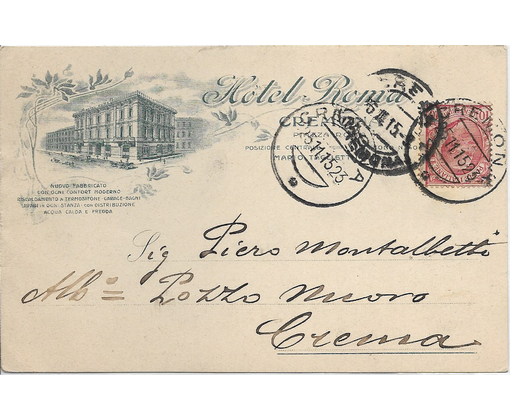 Hotel Roma
CRE
PIAZZA RO
POSIZIONE CENTRA
MARIO TA
NUOVO FABBRICATO
CON OGNI CONFORT MODERNO
RISCALDAMENTO A TERMOSIFONE - GARAGE - BAGNI
IN OGNI STANZA - CON DISTRIBUZIONE
ACQUA CALDA E FREDDA
CREMONA
15.11.15.23
Sig Piero Montalbetti
Alb° Pozzo Nuovo
Crema